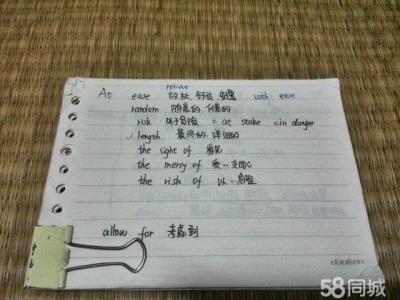 relieve
At ease 放松 舒适 with ease
random 随意的 任意的
risk 处于危险 = at stake = in danger
length 最终的. 详细的
the sight of 看见
the mercy of 受…支配
the risk of 以…危险
allow for 考虑到
58同城